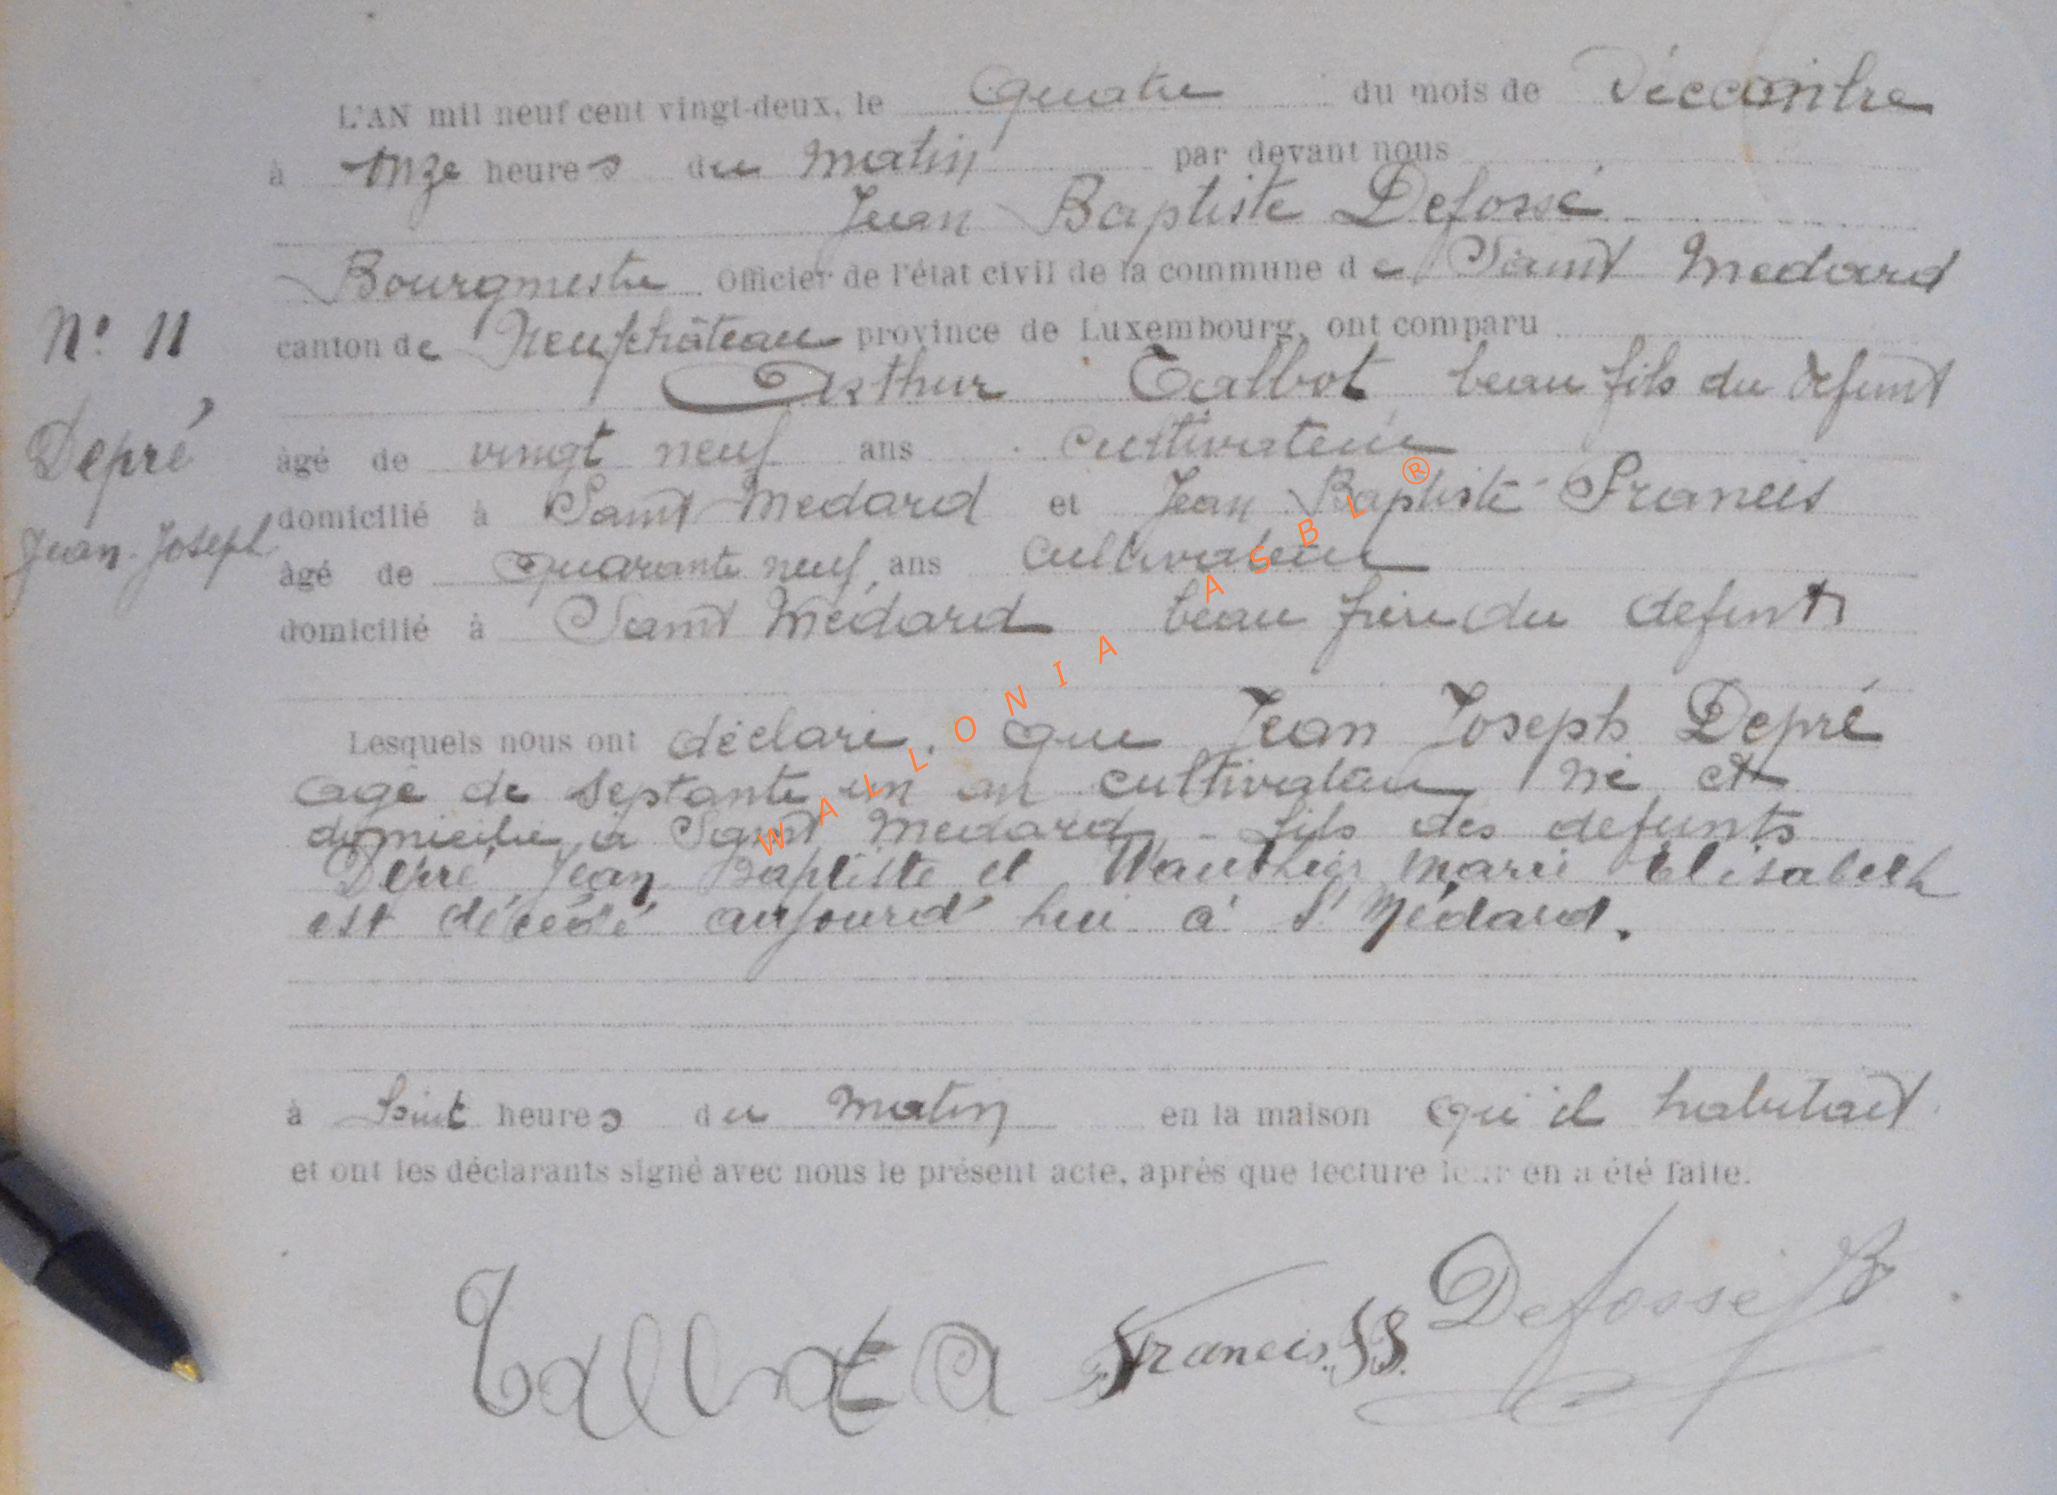 L'AN mil neuf cent vingt-deux, le quatre du mois de Décembre
à onze heures du matin par devant nous
Jean Baptiste Defossé
Bourgmestre Officier de l'état civil de la commune de Saint Medard
N° 11
canton de Neufchâteau province de Luxembourg, ont comparu
Arthur Talbot beau fils du défunt
Depré
Jean-Joseph
âgé de vingt neuf ans cultivateur
domicilié à Saint Medard et Jean Baptiste Francis
âgé de quarante neuf ans cultivateur
domicilié à Saint Médard beau frère du defunt
Lesquels nous ont déclaré que Jean Joseph Depré
agé de septante un an cultivateur né et
domicilié à Saint Medard - fils des defunts
Depré Jean Baptiste et Wauthier Marie Elisabeth
est décédé aujourd'hui à St Médard.
à heures du matin en la maison qu'il habitait
et ont les déclarants signé avec nous le présent acte, après que lecture leur en a été faite.
Talbot A Francis. J B. Defossé JB
WALLONIA ASBL ®